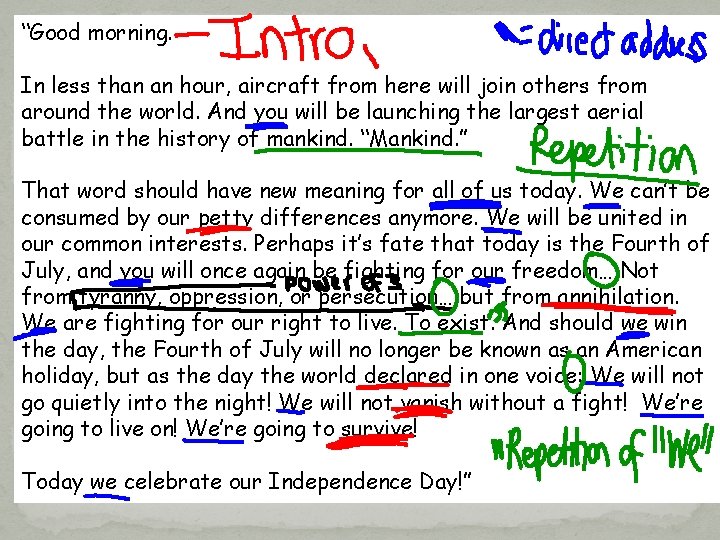 “Good morning. – Intro. = direct address
In less than an hour, aircraft from here will join others from
around the world. And you will be launching the largest aerial
battle in the history of mankind. “Mankind.”
Repetition
That word should have new meaning for all of us today. We can’t be
consumed by our petty differences anymore. We will be united in
our common interests. Perhaps it’s fate that today is the Fourth of
July, and you will once again be fighting for our freedom… Not
power of 3
from tyranny, oppression, or persecution… but from annihilation.
We are fighting for our right to live. To exist. And should we win
the day, the Fourth of July will no longer be known as an American
holiday, but as the day the world declared in one voice: We will not
go quietly into the night! We will not vanish without a fight! We’re
going to live on! We’re going to survive!
Repettion of "We"
Today we celebrate our Independence Day!”